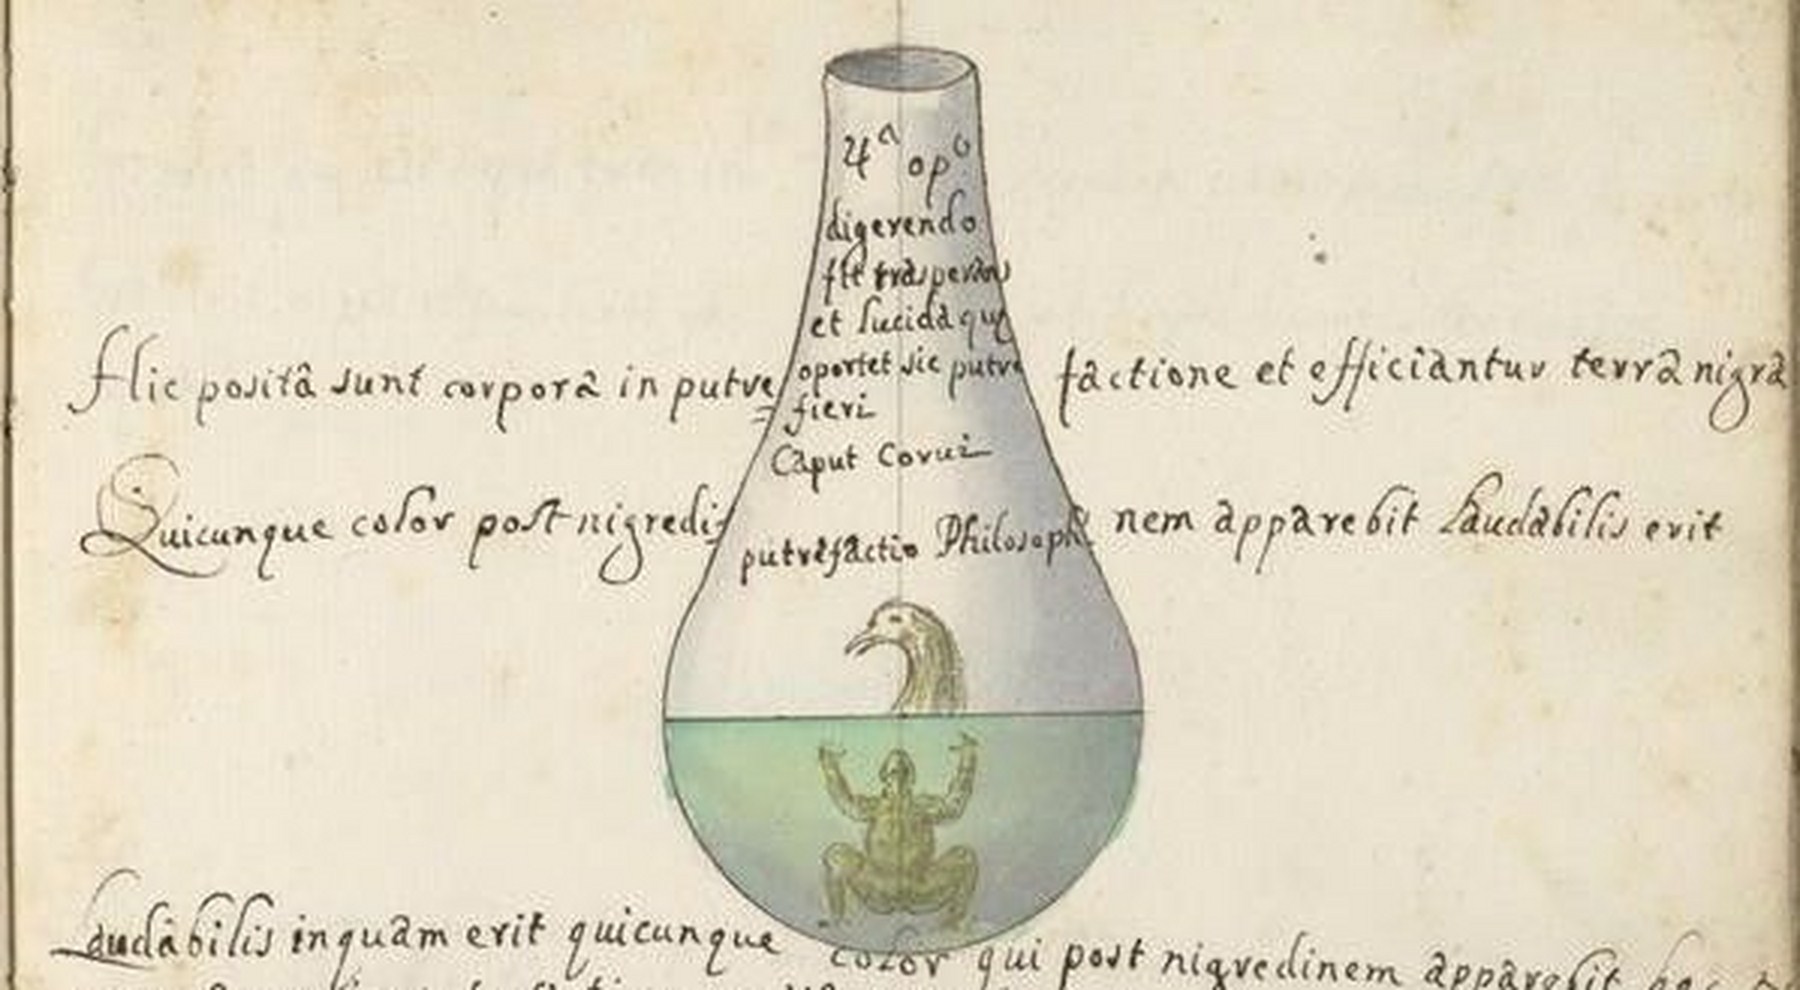 4ª opº
digerendo
fit trāsperans
et lucida quę
oportet sic putre
fieri
Hic posita sunt corpora in putre= factione et efficiantur terra nigra
Caput Corui
Quicunque color post nigredi= nem apparebit laudabilis erit
putrefactio Philosoph.
Laudabilis inquam erit quicunque color qui post nigredinem apparebit hac